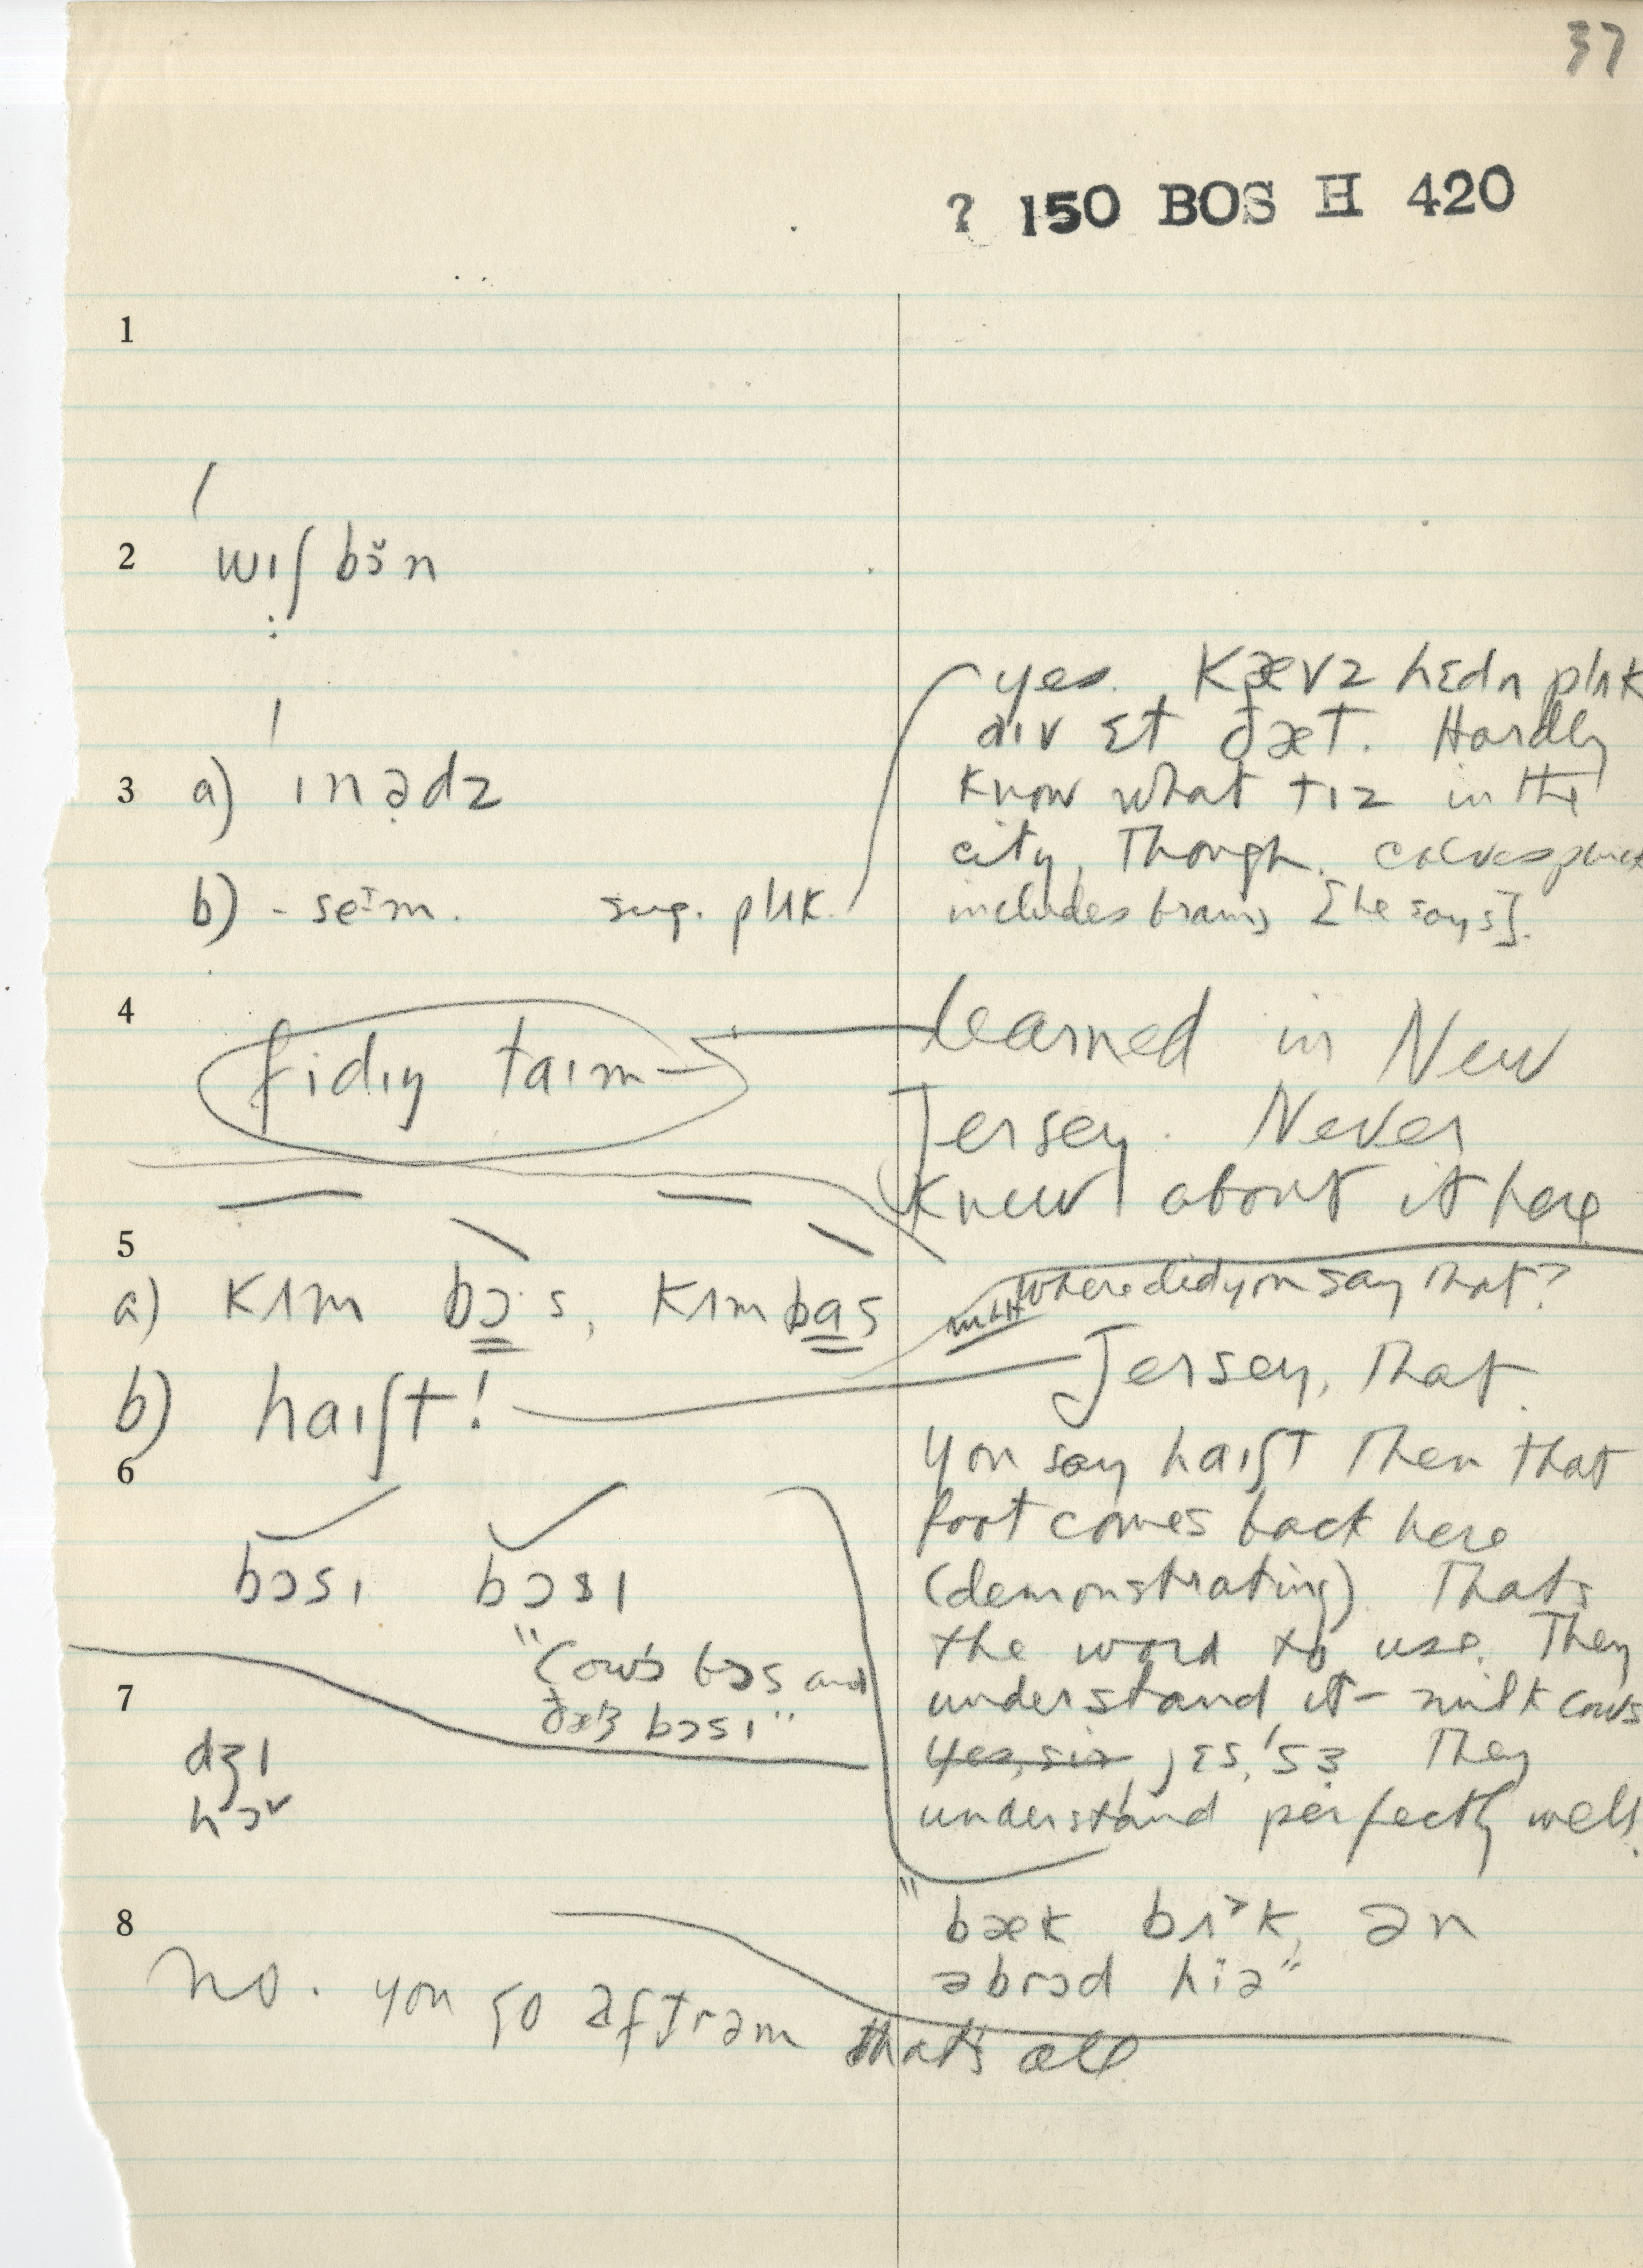 37
? 150 BOS H 420
1
2 wɪʃ bɔ̆n
3 a) ɪnədz
b) - seɪm. sug. plʌk.
yes. Kævz hɛdn plʌk
aɪv ɛt ðæt. Hardly
know what tɪz in the
city, Though. calvespluck
includes brains [he says].
4 fidɪŋ taɪm
learned in New
Jersey. Never
knew about it here
5
a) kʌm bɔ·s, kʌm bas
where did you say that?
b) haɪʃt!
Jersey, that.
You say haɪʃt then that
foot comes back here
(demonstrating). Thats
the word to use. They
understand it - milk cows
yes, sir jɛs,'sɜ They
understand perfectly well.
6
bɔsɪ bɔsɪ
"Cows bɔs and
ðæts bɔsɪ"
7
dʒɪ
hɔ
"bæk bɪ>k, ən
əbrɔd hiə"
8
No. you go æftrəm that's all